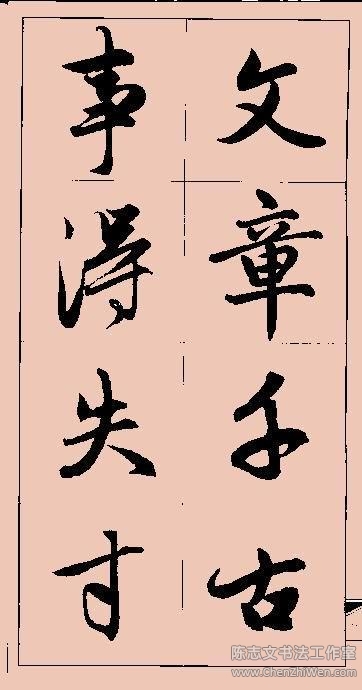 文章千古
事得失寸
陈志文书法工作室
www.ChenzhiWen.com